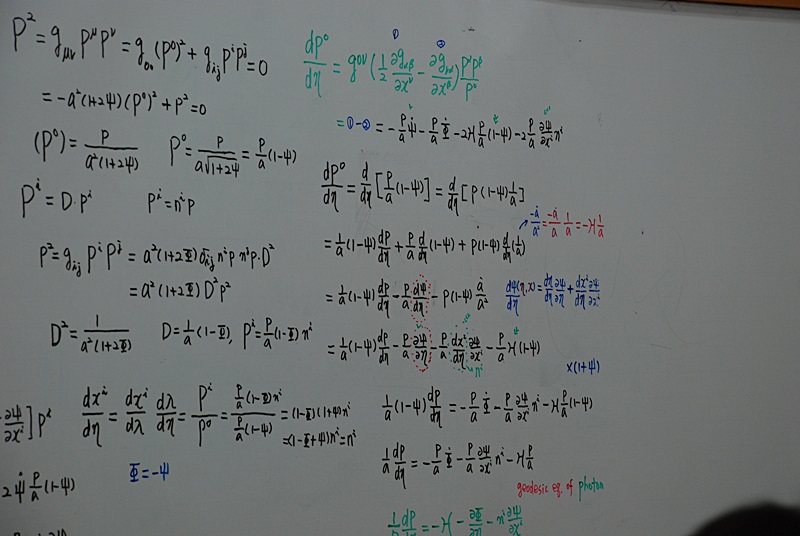 P² = g_μν P^μ P^ν = g_00 (P⁰)² + g_ij P^i P^j = 0
= -a²(1+2ψ)(P⁰)² + P² = 0
(P⁰) = P / a²(1+2ψ)   P⁰ = P / a√(1+2ψ) = P/a (1-ψ)
P^i = D · P^i   P^i = n^i P
P² = g_ij P^i P^j = a²(1+2Φ) δ_ij n^i P n^j P · D²
= a²(1+2Φ) D² P²
D² = 1 / a²(1+2Φ)   D = 1/a (1-Φ),   P^i = P/a (1-Φ) n^i
∂ψ/∂x^i ] P^i
dx^i/dη = dx^i/dλ dλ/dη = P^i/P⁰ = P/a (1-Φ) n^i / P/a (1-ψ) = (1-Φ)(1+ψ) n^i
= (1-Φ+ψ) n^i = n^i
2ψ̇ P/a (1-ψ)
Φ = -ψ
① ②
dP⁰/dη = g^0ν ( 1/2 ∂g_αβ/∂x^ν - ∂g_να/∂x^β ) P^α P^β / P⁰
= ① - ② = - P/a ψ̇ - P/a Φ̇ - 2H P/a (1-ψ) - 2 P/a ∂ψ/∂x^i n^i
dP⁰/dη = d/dη [ P/a (1-ψ) ] = d/dη [ P (1-ψ) 1/a ]
-ȧ/a² = -ȧ/a 1/a = -H 1/a
= 1/a (1-ψ) dP/dη + P/a d/dη (1-ψ) + P(1-ψ) d/dη (1/a)
= 1/a (1-ψ) dP/dη - P/a dψ/dη - P(1-ψ) ȧ/a²
dψ(η,x)/dη = dη/dη ∂ψ/∂η + dx^i/dη ∂ψ/∂x^i
= 1/a (1-ψ) dP/dη - P/a ∂ψ/∂η - P/a dx^i/dη ∂ψ/∂x^i - P/a H (1-ψ)
n^i
×(1+ψ)
1/a (1-ψ) dP/dη = - P/a Φ̇ - P/a ∂ψ/∂x^i n^i - H P/a (1-ψ)
1/a dP/dη = - P/a Φ̇ - P/a ∂ψ/∂x^i n^i - H P/a
geodesic eq. of photon
1/P dP/dη = -H - ∂Φ/∂η - n^i ∂ψ/∂x^i